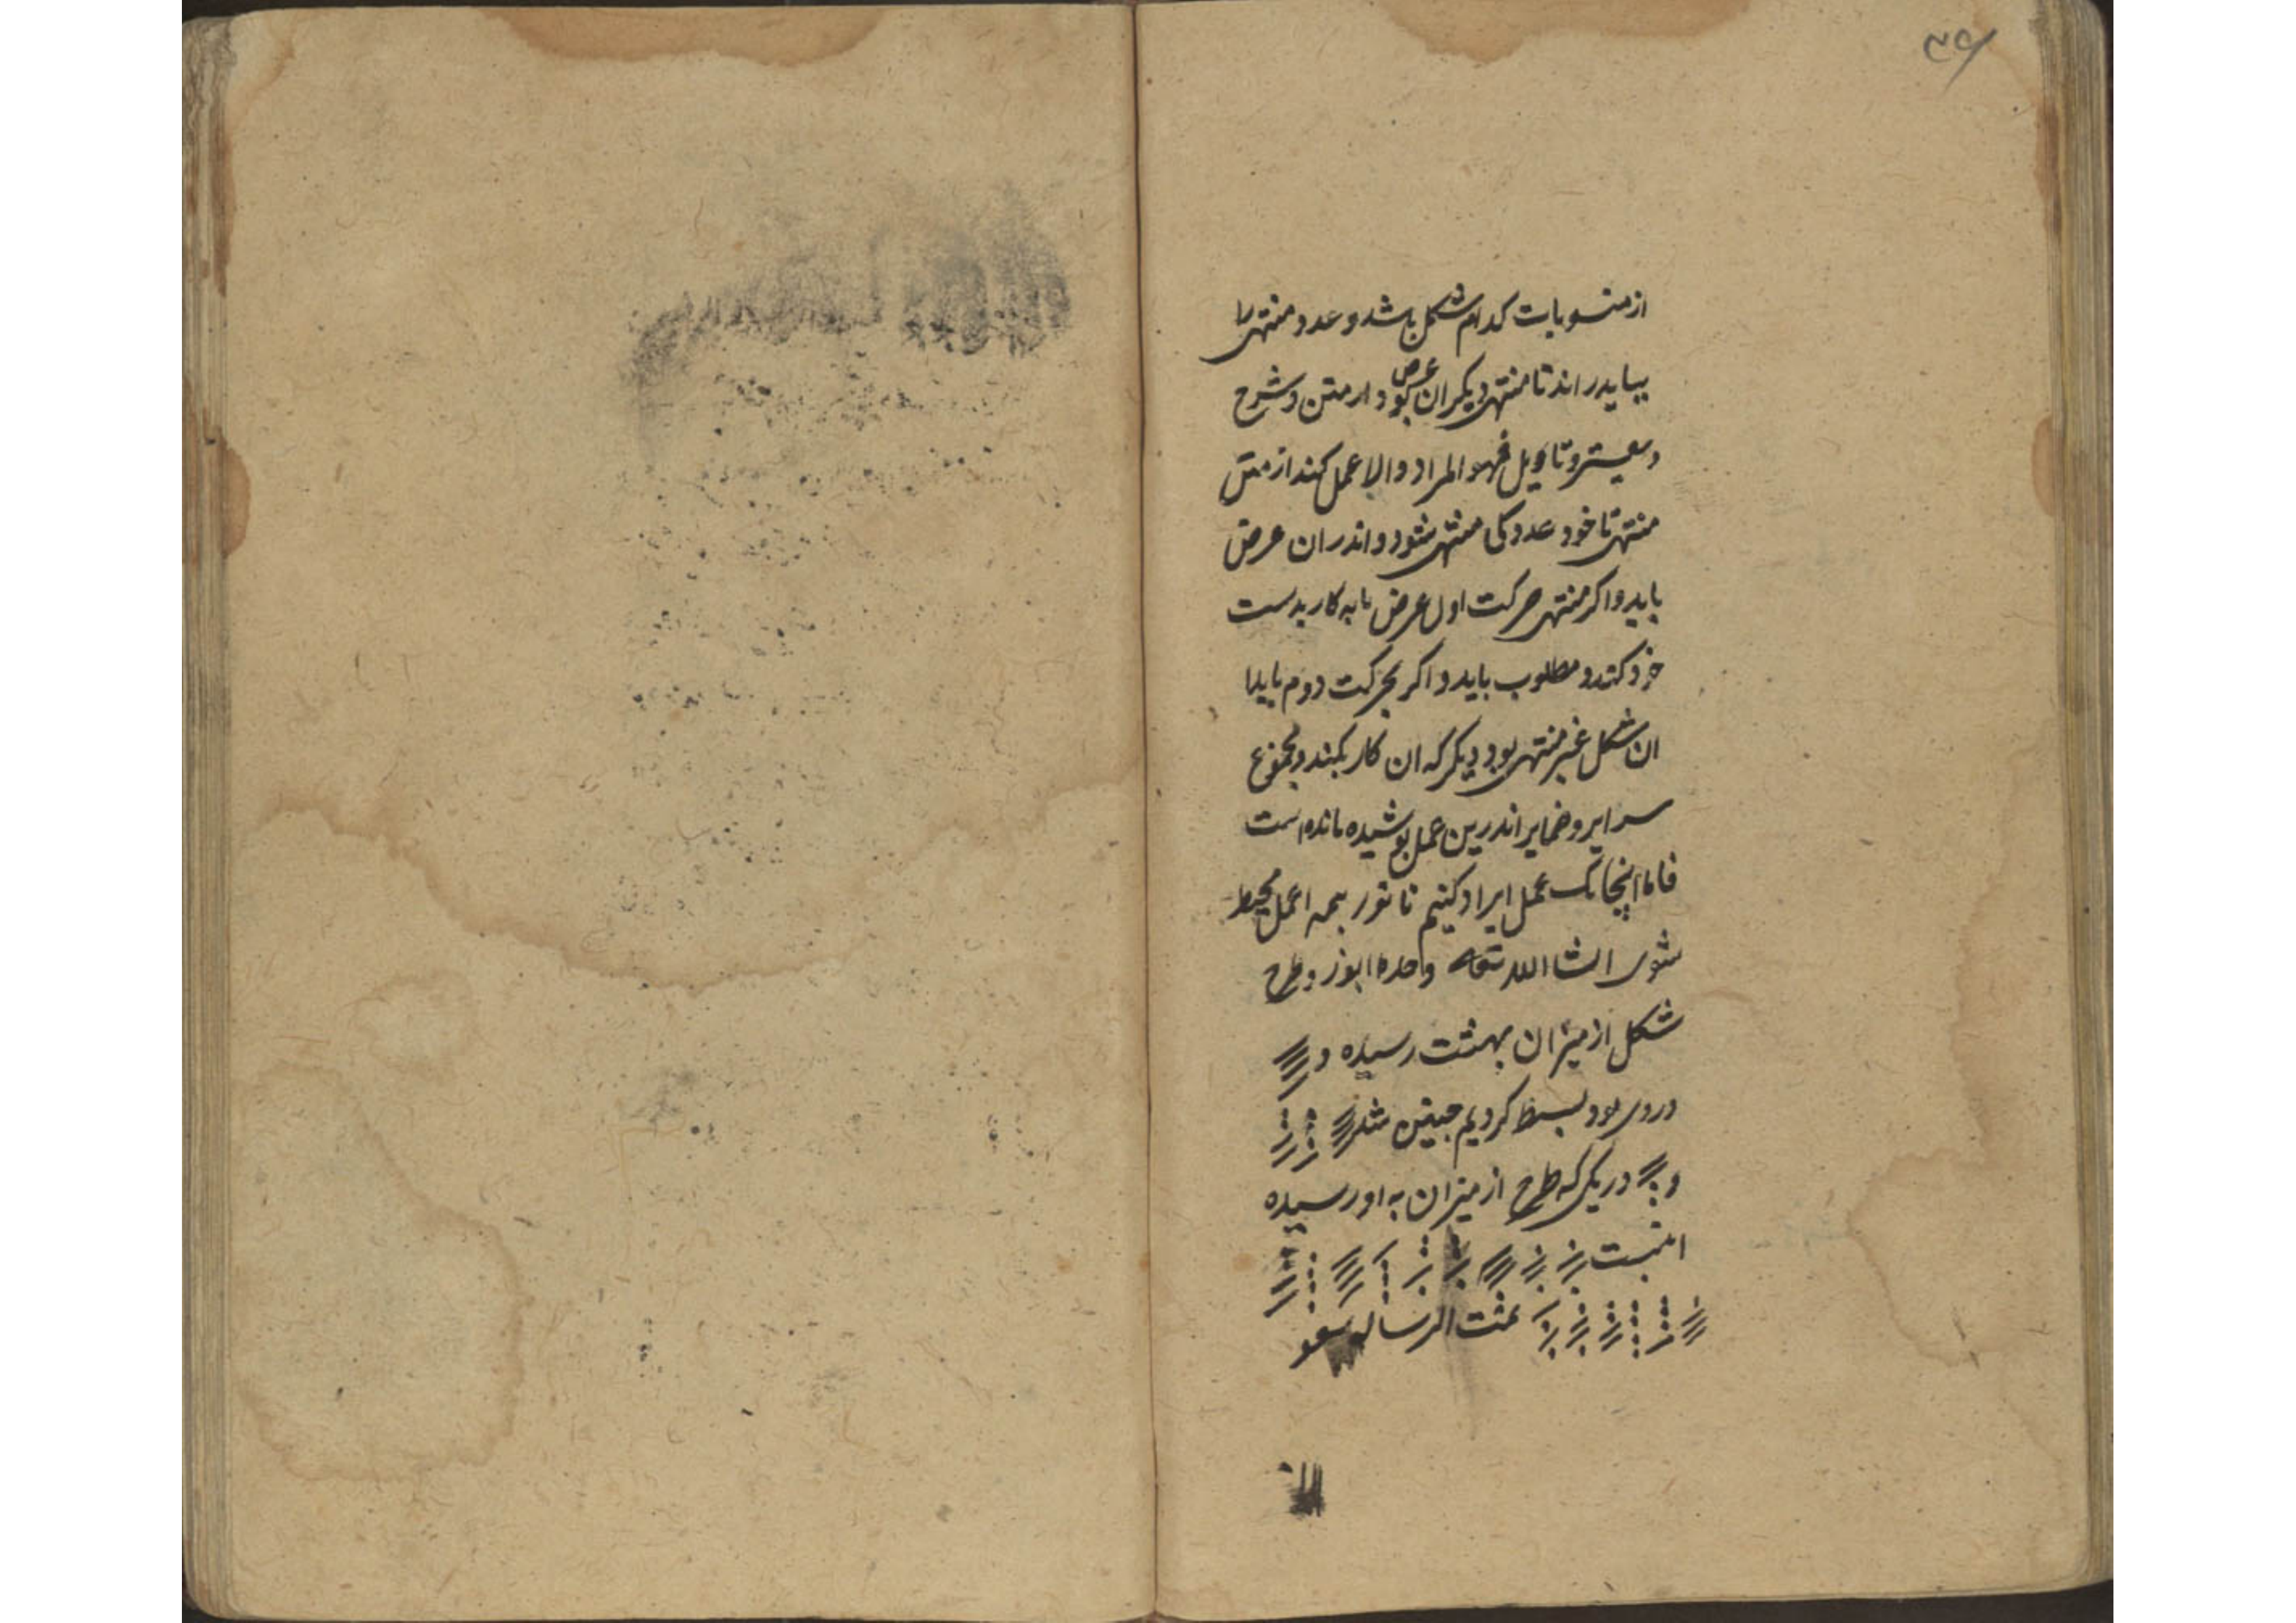 ۳۹
از منسوبات کدام شکل باشد و عدد منتهی را
بیاید راند تا منتهی دیکران عرض بود از متن و شرح
و تاویل فهو المراد و الا عمل کند از متن
منتهی تا خود عدد کی منتهی شود و اندران عرض
باید و اکر منتهی حرکت اول عرض کار بدست
خرد کند و مطلوب باید و اکر بحرکت دوم
ان شکل غیر منتهی بود دیکر که ان کار بکند و مجموع
سرایر و ضمایر اندرین عمل پوشیده مانده است
فاما اینجا یک عمل ایراد کنیم تا تو بر همه اعمل محیط
شوی انشا الله تعالی وحده و طرح
شکل از میزان بهشت رسیده و
در وی بود بسط کردیم چنین شد
و در یکی که طرح از میزان به او رسیده
اینست
تمت الرساله